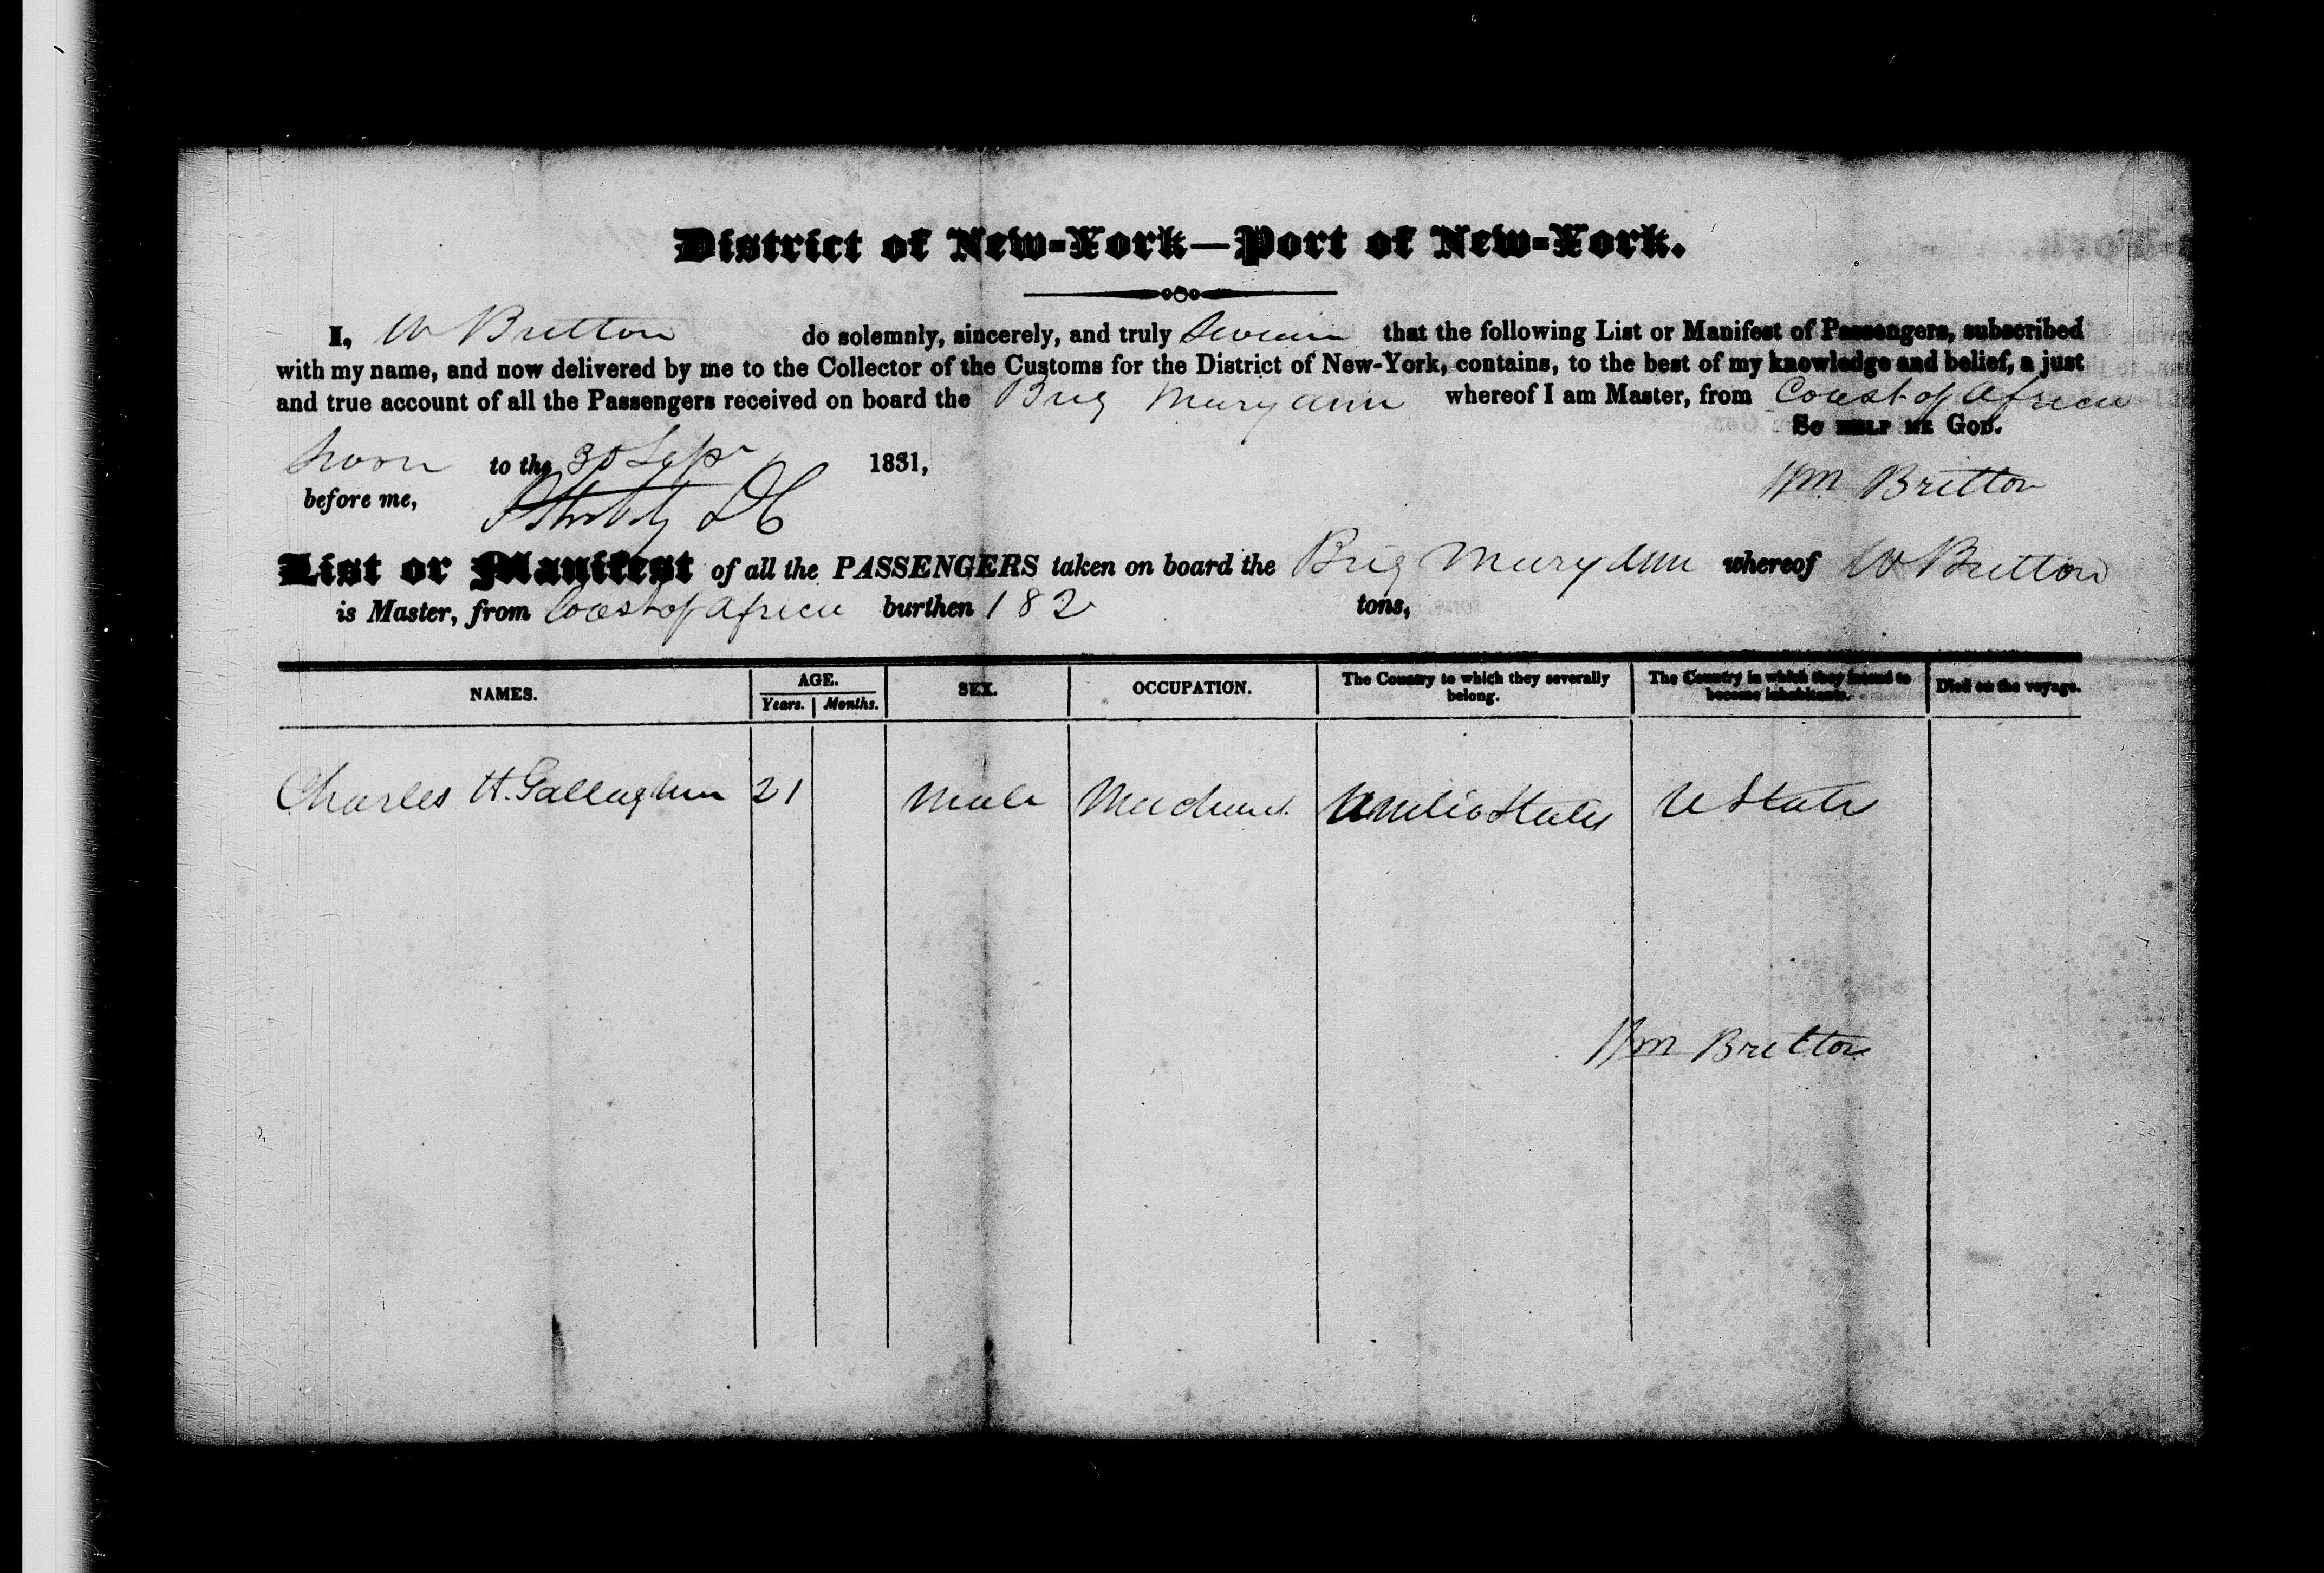 District of New-York—Port of New-York.
I, W Britton do solemnly, sincerely, and truly Swear that the following List or Manifest of Passengers, subscribed
with my name, and now delivered by me to the Collector of the Customs for the District of New-York, contains, to the best of my knowledge and belief, a just
and true account of all the Passengers received on board the Brig Mary Ann whereof I am Master, from Coast of Africa
So HELP ME GOD.
Sworn to the 30 Sepr 1831,
Wm Britton
before me,
List or Manifest of all the PASSENGERS taken on board the Brig Mary Ann whereof W Britton
is Master, from Coast of Africa burthen 182 tons,
NAMES. AGE. Years. Months. SEX. OCCUPATION. The Country to which they severally belong. The Country in which they intend to become inhabitants. Died on the voyage.
Charles H. Gallagher 21 Male Merchant United States U State
Wm Britton